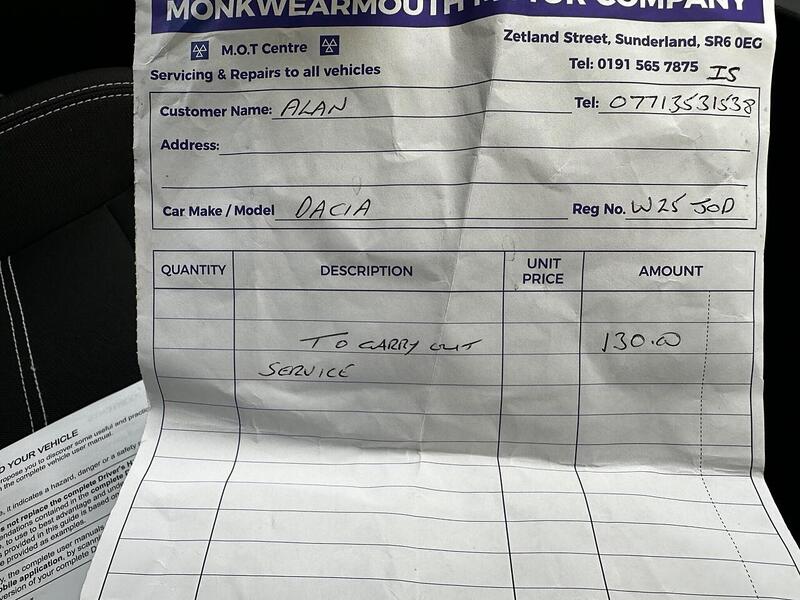 MONKWEARMOUTH MOTOR COMPANY
M.O.T Centre
Zetland Street, Sunderland, SR6 0EG
Servicing & Repairs to all vehicles
Tel: 0191 565 7875
IS
Customer Name: ALAN Tel: 07713531538
Address:
Car Make / Model DACIA Reg No. W25 JOD
QUANTITY DESCRIPTION UNIT PRICE AMOUNT
TO CARRY OUT 130.00
SERVICE
D YOUR VEHICLE
ropose you to discover some useful and practic
the complete vehicle user manual.
, it indicates a hazard, danger or a safety
s not replace the complete Driver's H
endations contained in the complete
, to use to best advantage and under
s provided in this guide is based on
e provided as examples.
y, the complete user manuals
obile application, by scanning
version of your complete D